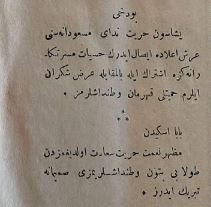 بودخی
یشاسون حریت ندای مسعودانه‌سی
عرش اعلاده ایصال ایدرك حسیات مسرتكـا
رانه‌كزه اشتراك ایله بالمقابله عرض شكران
ایلرم حمیتلی قهرمان وطنداشلرمز ٠
٭٭
بابا اسكیدن
مظهر نعمت حریت سعادت اولدیغمزدن
طولایی بتون وطنداشلریمزی صمیمانه
تبریك ایدرز ٠